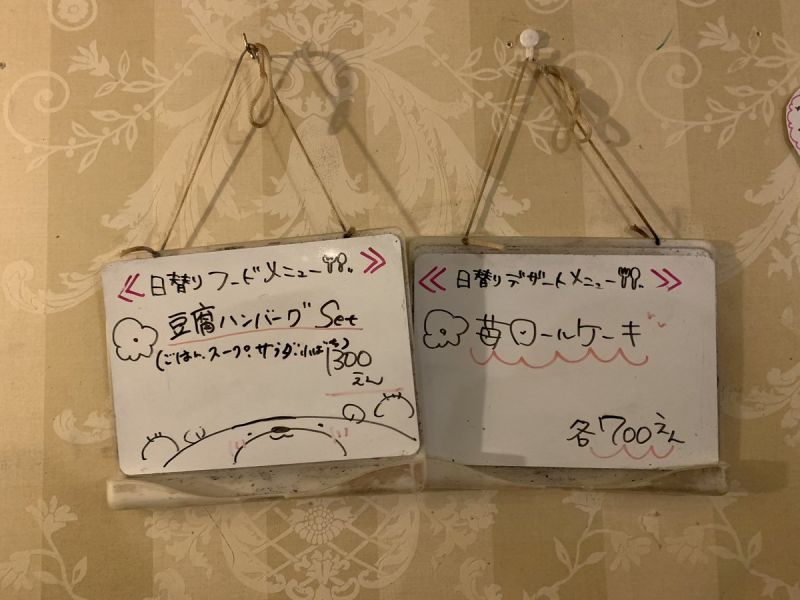 ≪日替りフードメニュー≫
豆腐ハンバーグSet
(ごはん、スープ、サラダ、小ばち)
1300
えん
≪日替りデザートメニュー≫
苺ロールケーキ
各700えん